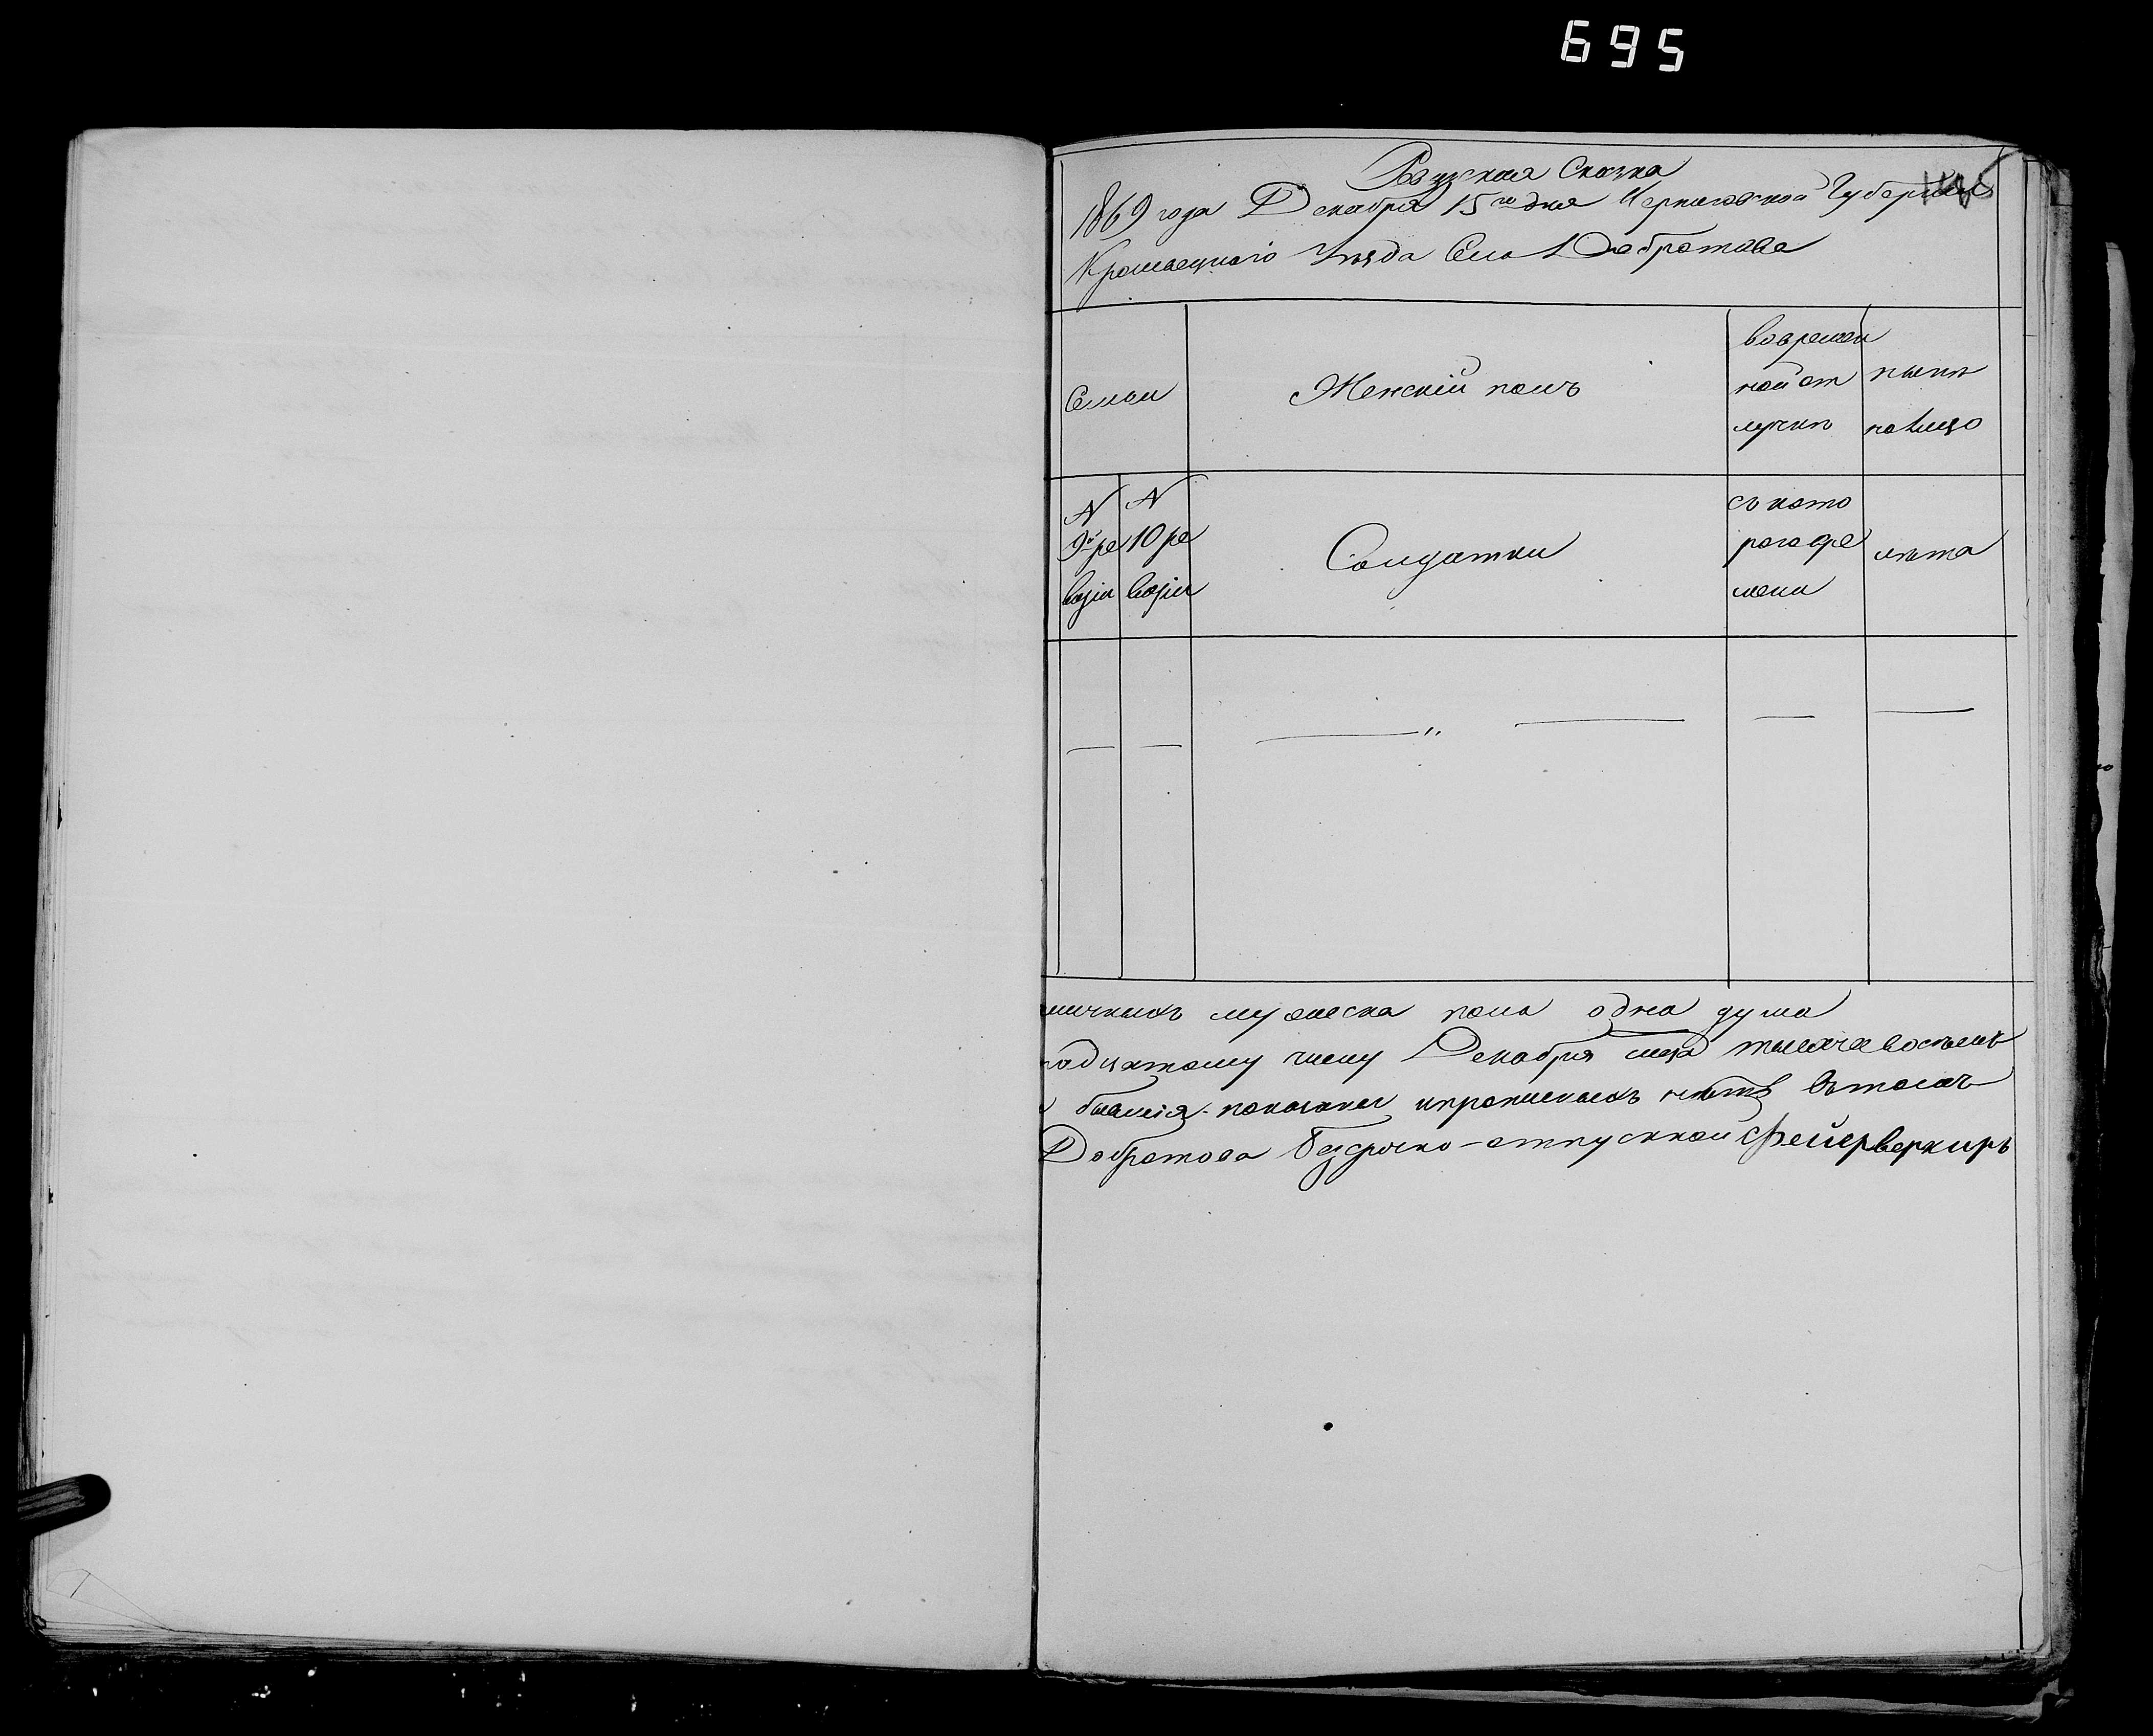 695
Ревизская Сказка
1869 года Декабря 15го дня Черниговской Губернии
Кролевецкаго Уезда Село Добротова
Семьи
Женскій полъ
вовремен
ной от
лучкѣ
нынѣ
налицо
N
9й ре
визіи
N
10 ре
визіи
Солдатки
съ кото
раго вре
мени
лѣта
личныхъ мужеска пола одна душа
надцатому числу Декабря мца тысяча восемь
бывшія показаны ипрописныхъ нѣтъ вътомъ
Добротова безсрочно-отпускной Фейерверкиръ